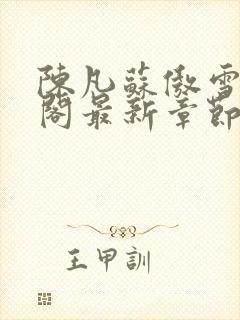 陳凡蘇傲雪
閣最新章節
王甲訓